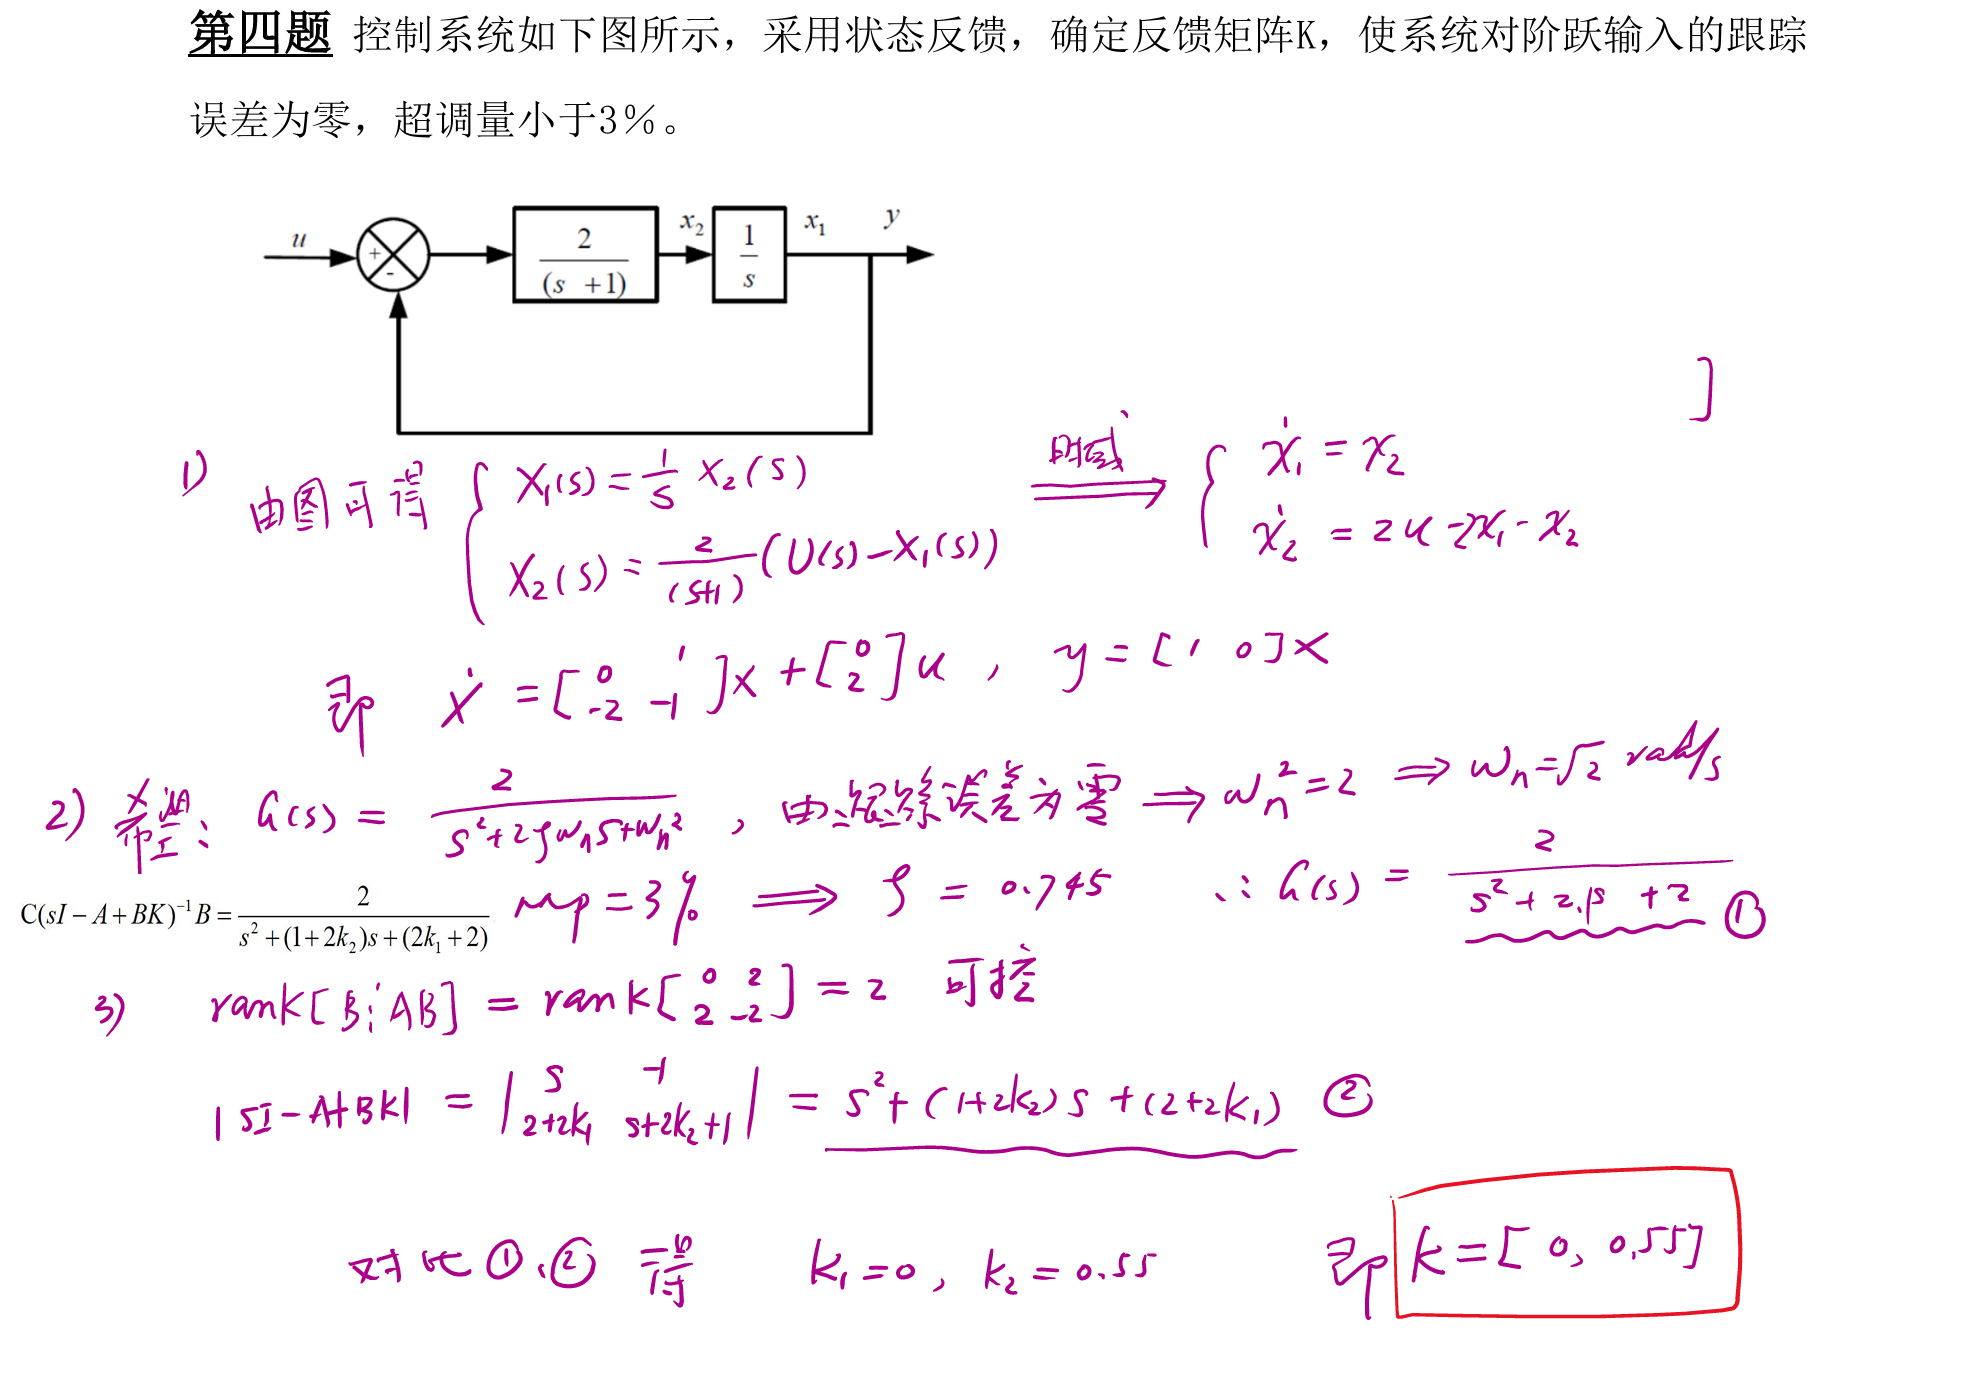 第四题 控制系统如下图所示，采用状态反馈，确定反馈矩阵K，使系统对阶跃输入的跟踪
误差为零，超调量小于3%。
u + - 2/(s +1) x₂ 1/s x₁ y
]
1) 由图可得 { X₁(s) = 1/s X₂(s) 时域 ⟹ { ẋ₁ = x₂
X₂(s) = 2/(s+1) (U(s)-X₁(s)) ẋ₂ = 2u-2x₁-x₂
即 ẋ = [0 1; -2 -1]x + [0; 2]u , y = [1 0]x
2) 希望: G(s) = 2/(s²+2ζωₙs+ωₙ²) , 由跟踪误差为零 ⟹ ωₙ²=2 ⟹ ωₙ=√2 rad/s
C(sI−A+BK)⁻¹B = 2/(s²+(1+2k₂)s+(2k₁+2)) Mp=3% ⟹ ζ = 0.745 ∴ G(s) = 2/(s²+2.1s+2) ①
3) rank[B⋮AB] = rank[0 2; 2 -2] = 2 可控
|sI-A+BK| = |s -1; 2+2k₁ s+2k₂+1| = s²+(1+2k₂)s+(2+2k₁) ②
对比①、②得 k₁=0, k₂=0.55 即 k=[0, 0.55]